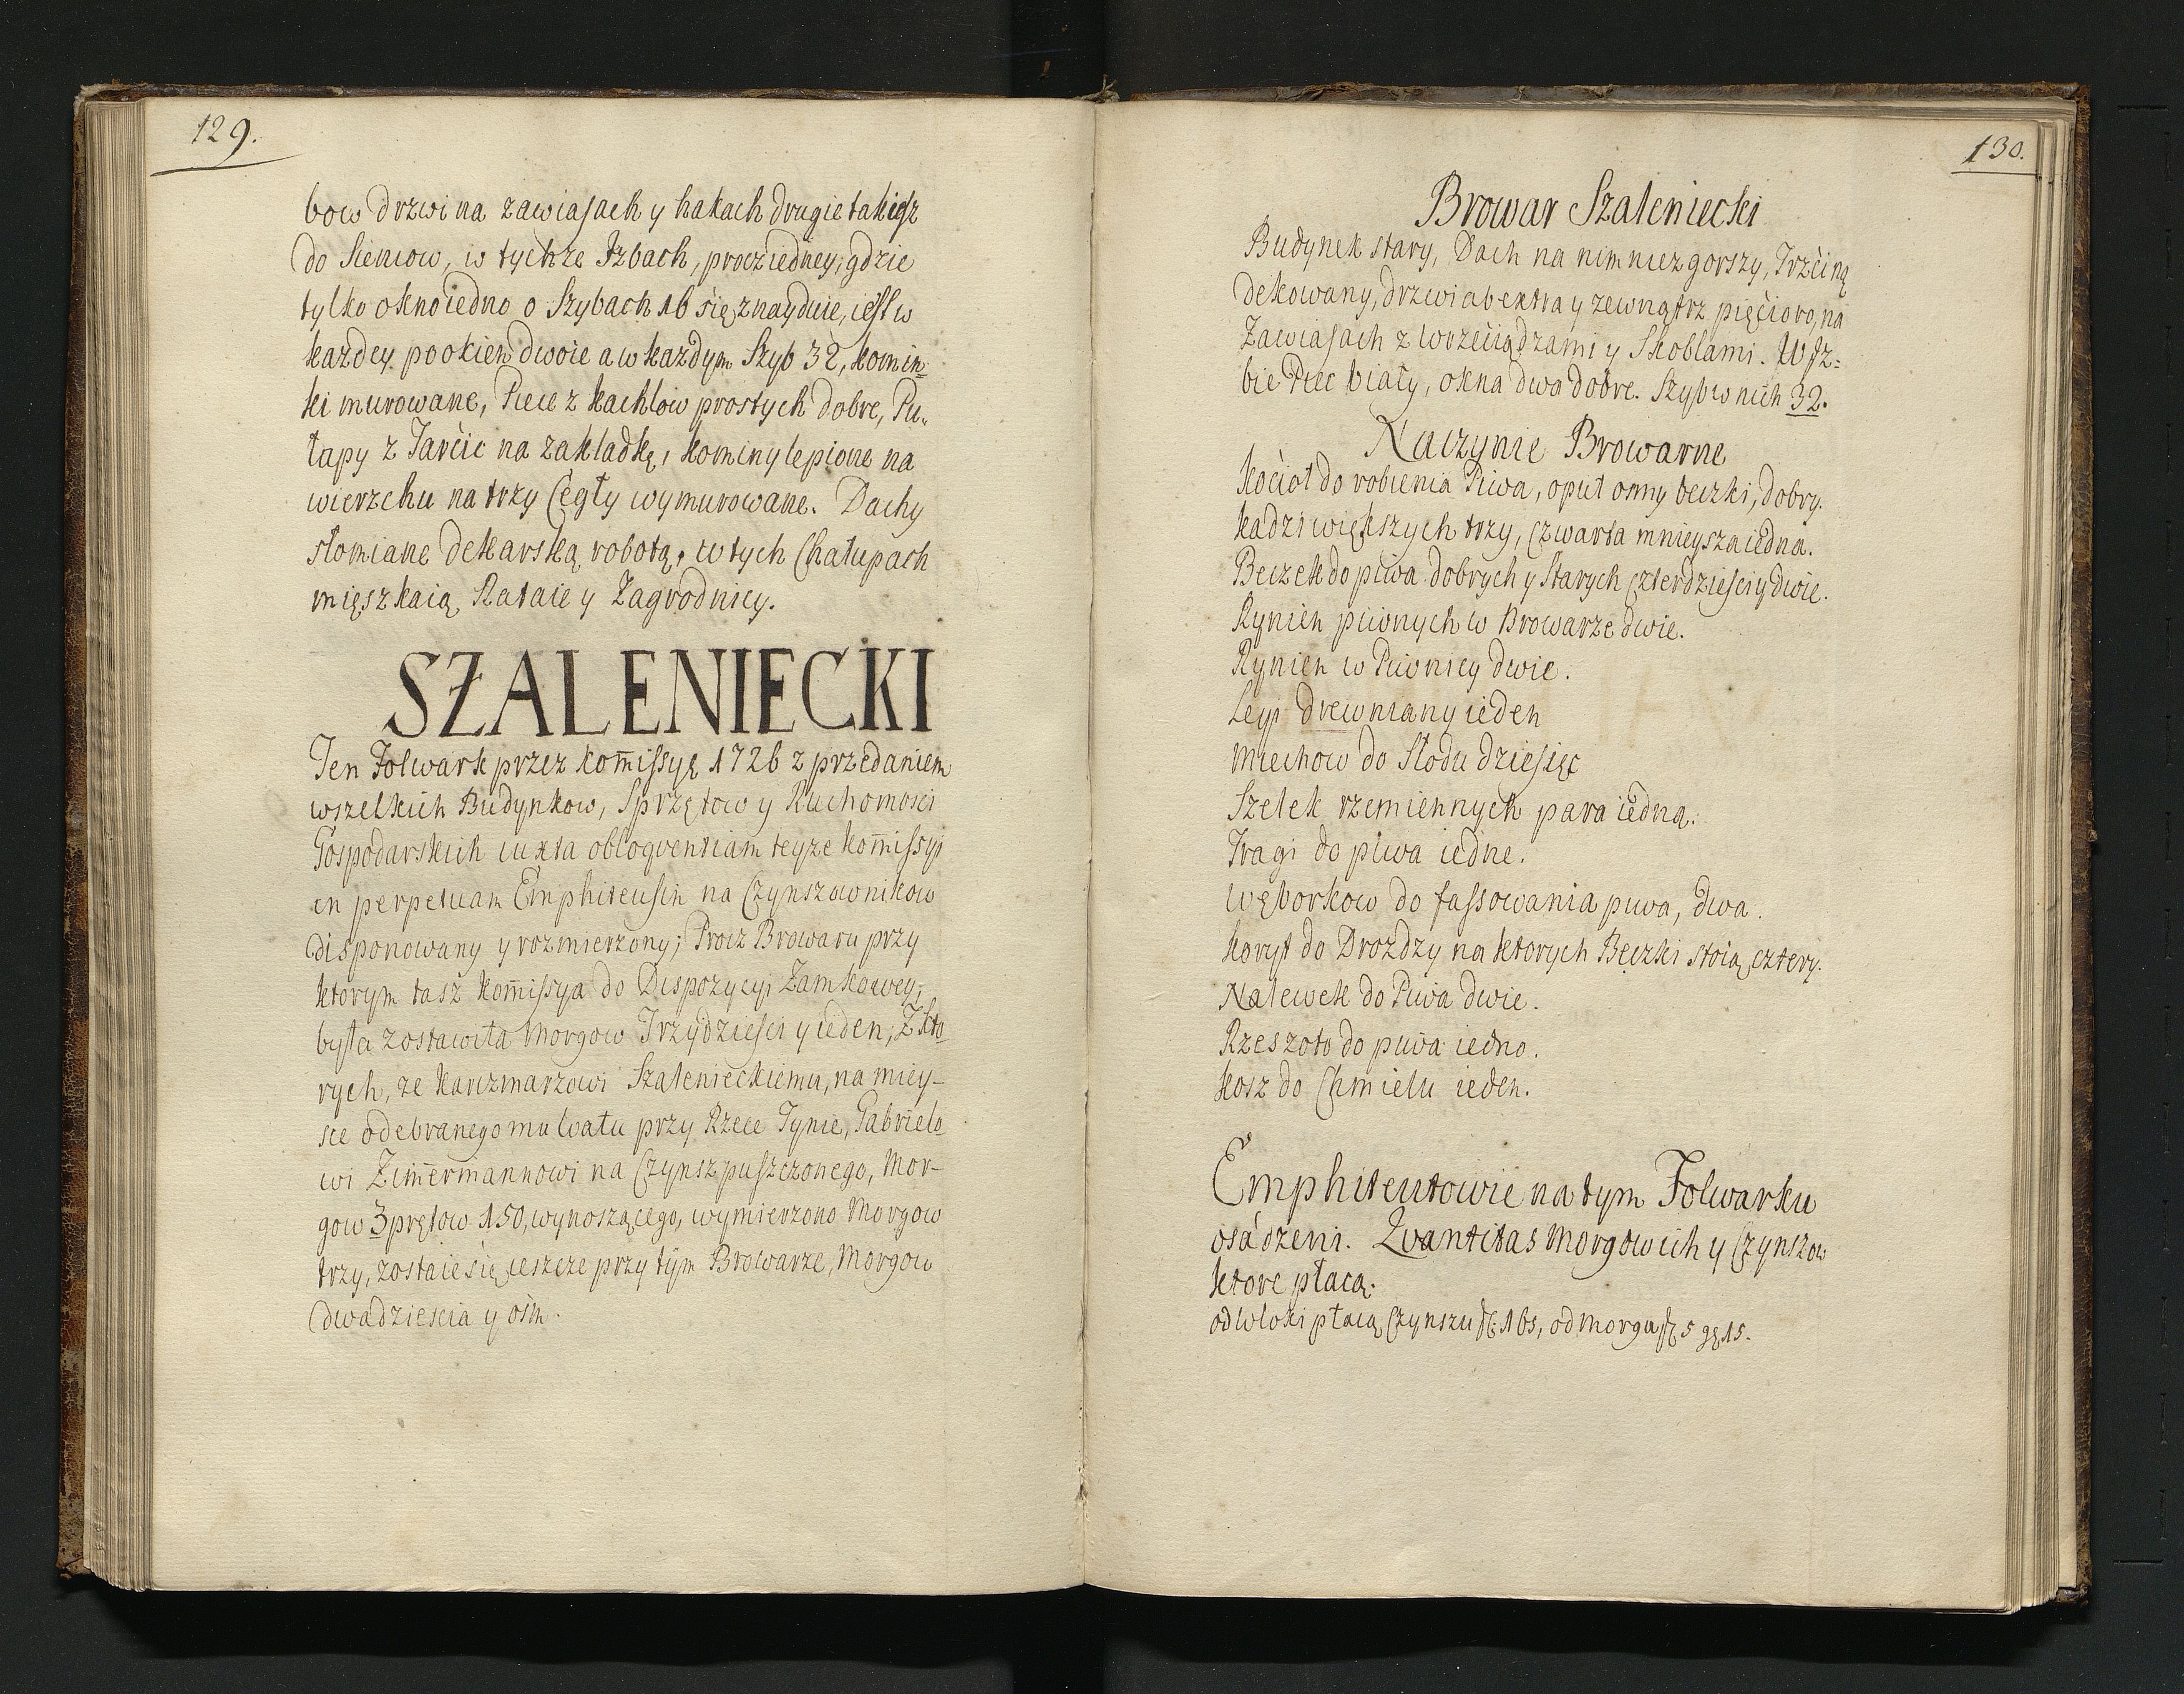 129.
bow drzwi na zawiasach y hakach drugie takiesz
do Sieniow, w tychże Jzbach, procz iedney, gdzie
tylko okno iedno o Szybach 16 się znayduie, iest w
każdey po okien dwoie a w każdym Szyb 32, komin-
ki murowane, Piece z kachlow prostych dobre, Pu-
łapy z Tarcic na zakładkę, kominy lepione na
wierzchu na trzy Cegły wymurowane. Dachy
słomiane dekarską robotą, w tych Chałupach
mięszkaią Rataie y Zagrodnicy.
SZALENIECKI
Ten Folwark przez kom̄issyą 1726 z przedaniem
wszelkich Budynkow, Sprzętow y Ruchomosci
Gospodarskich iuxta obloqventiam teyże kom̄issyi
in perpetuam Emphiteusin na Czynszownikow
disponowany y rozmierzony; Procz Browaru przy
ktorym tasz kom̄issya do Dispozycyi Zamkowey,
była zostawiła Morgow Trzydziesci y ieden, Z kto-
rych, że karczmarzowi Szalenieckiemu, na miey-
sce odebranego mu wału przy Rzece Tynie, Gabrielo-
wi Zim̄ermannowi na Czynsz puszczonego, Mor-
gow 3 prętow 150, wynoszącego, wymierzono Morgow
trzy, zostaie się ieszcze przy tym Browarze, Morgow
dwadziescia y osm.
130.
Browar Szaleniecki
Budynek stary, Dach na nim niezgorszy, Trzciną
dekowany, drzwi ab extra y zewnątrz pięcioro, na
Zawiasach z wrzeciądzami y Skoblami. W Jz-
bie Piec biały, okna dwa dobre. Szyb w nich 32.
Naczynie Browarne
Kocioł do robienia Piwa, oput osmy beczki, dobry.
Kadzi większych trzy, Czwarta mnieysza iedna.
Beczek do piwa dobrych y Starych Czterdziesci y dwie.
Rynien piwnych w Browarze dwie.
Rynien w Piwnicy dwie.
Leyi drewniany ieden
Miechow do Słodu dziesięc
Szelek rzemiennych para iedna.
Tragi do piwa iedne.
Węborkow do fassowania piwa, dwa.
Koryt do Drożdzy na ktorych Beczki stoią, cztery.
Nalewek do Piwa dwie.
Rzeszoto do piwa iedno.
Kosz do Chmielu ieden.
Emphiteutowie na tym Folwarku
osadzeni. Qvantitas Morgow ich y Czynszow
ktore płacą.
od włoki płacą Czynszu fl: 165, od morga fl 5 gr 15.